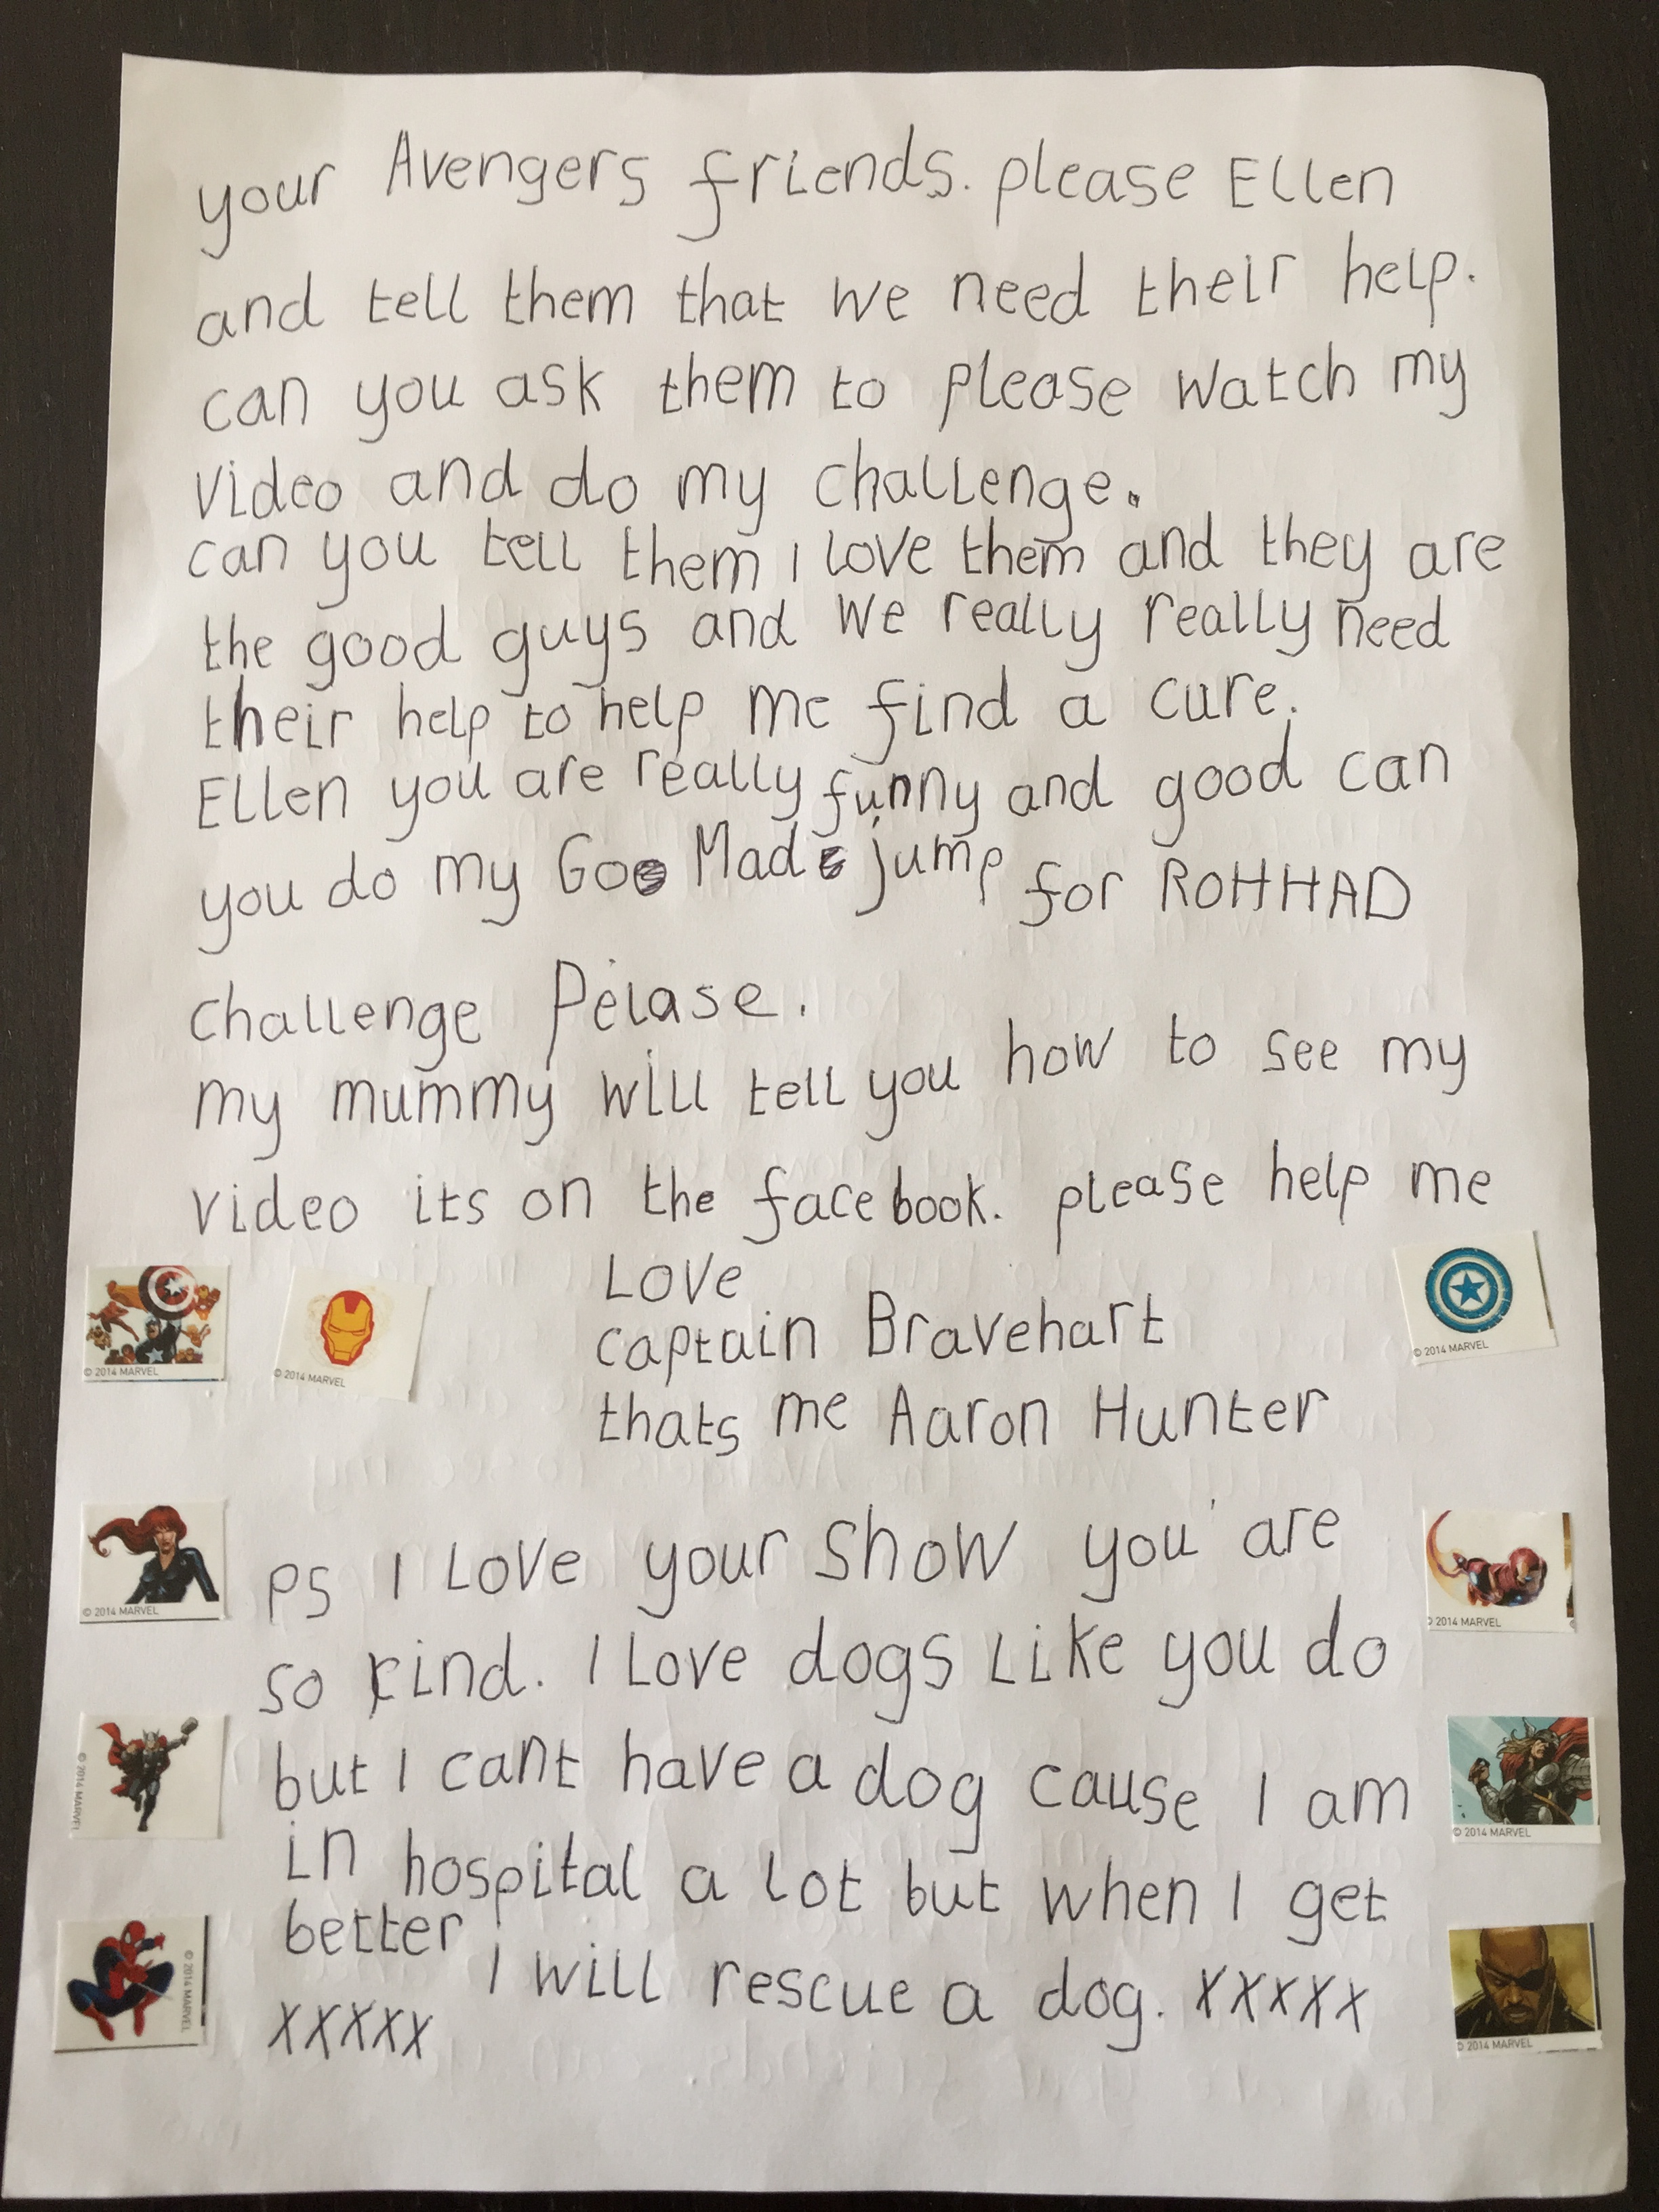 your Avengers friends. please Ellen
and tell them that we need their help.
can you ask them to please watch my
video and do my challenge.
can you tell them I love them and they are
the good guys and we really really need
their help to help me find a cure.
Ellen you are really funny and good can
you do my Go Mad jump for ROHHAD
challenge Pelase.
my mummy will tell you how to see my
video its on the face book. please help me
Love
captain Bravehart
thats me Aaron Hunter
© 2014 MARVEL
© 2014 MARVEL
© 2014 MARVEL
PS I Love your show you are
so kind. I Love dogs Like you do
but I cant have a dog cause I am
in hospital a lot but when I get
better I will rescue a dog. xxxxx
xxxxx
© 2014 MARVEL
© 2014 MARVEL
© 2014 MARVEL
© 2014 MARVEL
© 2014 MARVEL
© 2014 MARVEL